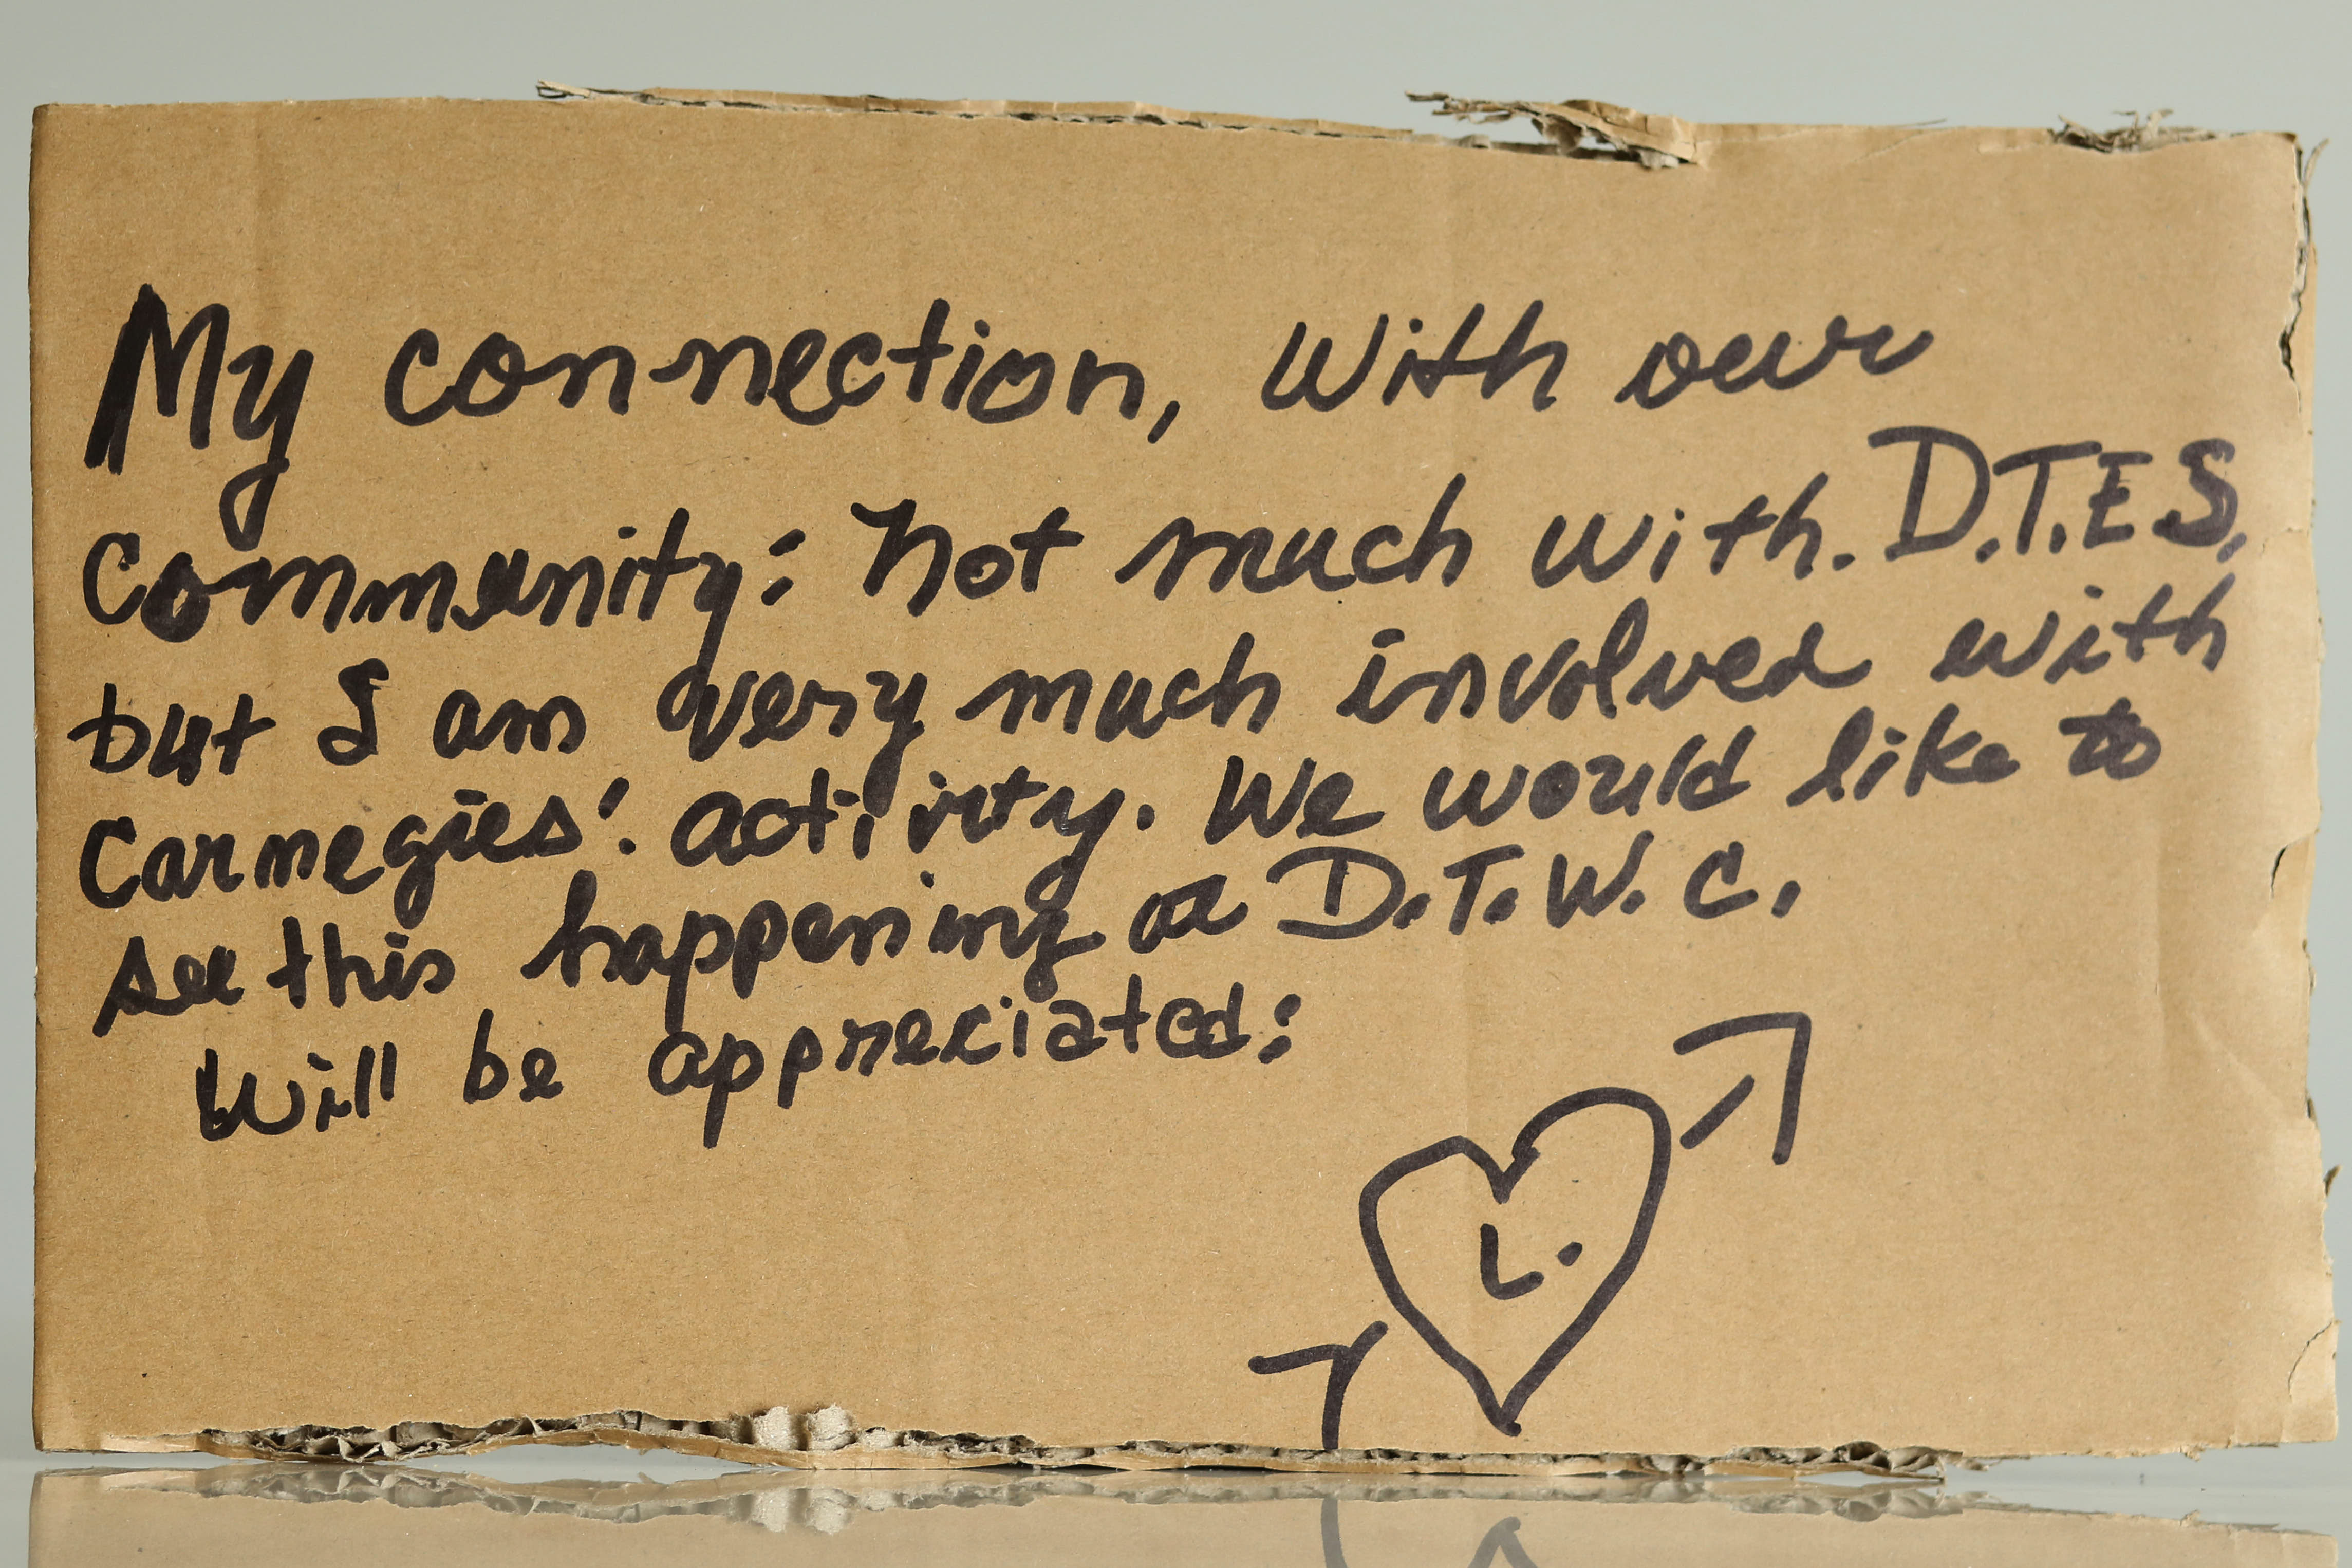 My connection, With our
Community: not much with. D.T.E.S.
but I am very much involved with
Carnegies'. activity. We would like to
see this happening at D.T.W.C.
Will be appreciated:
L.